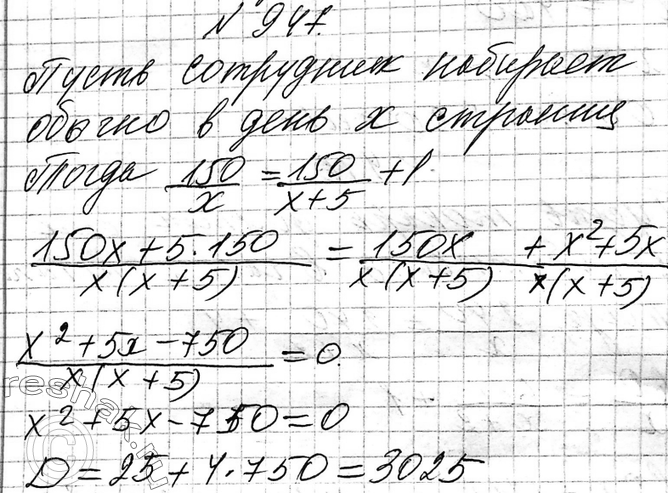 № 941.
Пусть сотрудник набирает
обычно в день x страниц
Тогда 150/x = 150/(x+5) + 1
(150x+5·150)/(x(x+5)) = 150x/(x(x+5)) + (x²+5x)/(x(x+5))
(x²+5x-750)/(x(x+5)) = 0
x²+5x-750=0
D=25+4·750=3025
reshak.ru